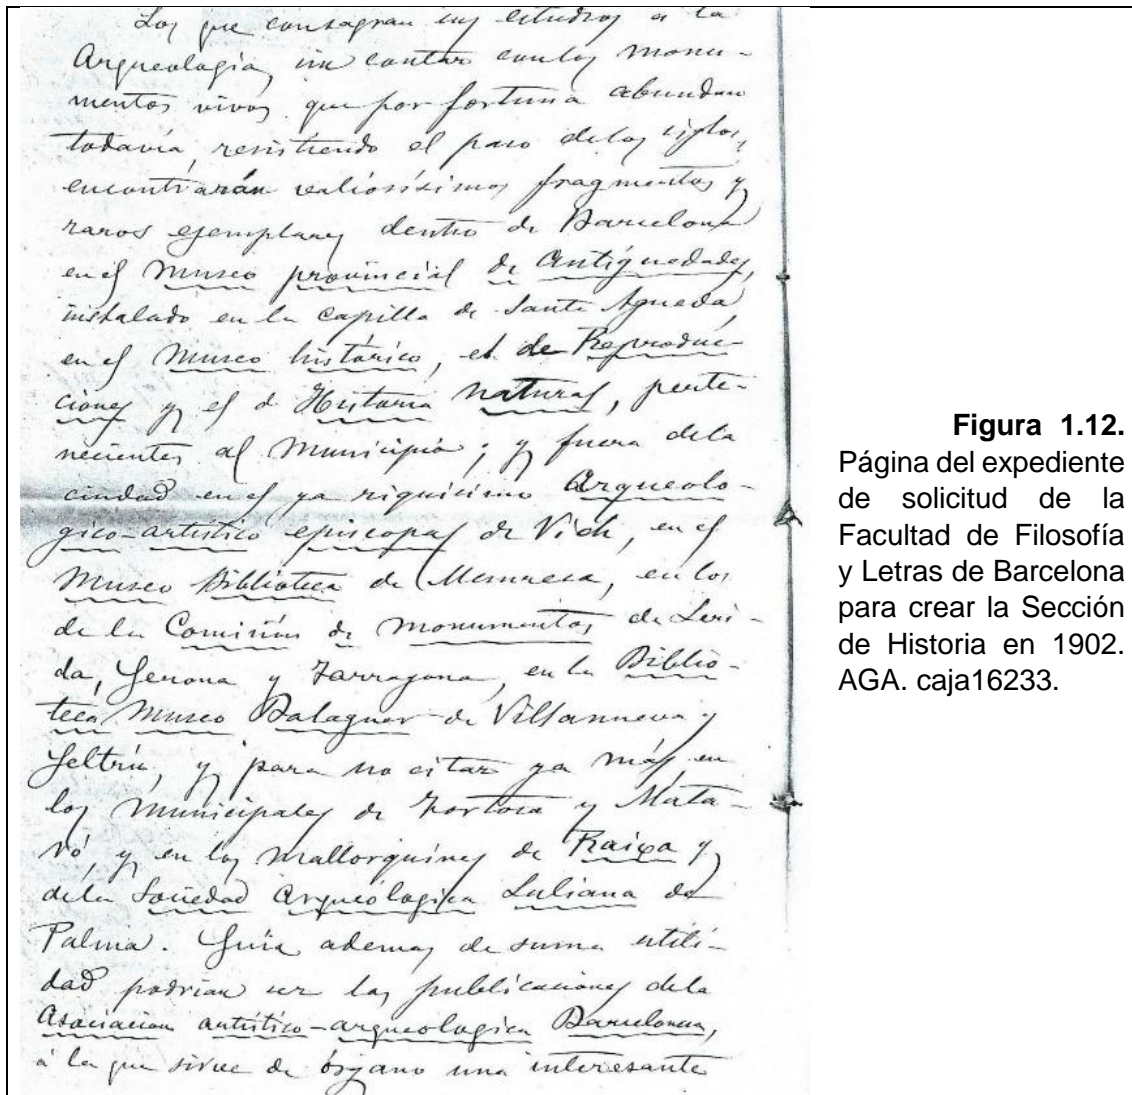 Los que consagran sus estudios a la
Arqueología, sin contar con los monu-
mentos vivos que por fortuna abundan
todavía, resistiendo el paso de los siglos,
encontrarán valiosísimos fragmentos y
raros ejemplares dentro de Barcelona
en el Museo provincial de Antigüedades,
instalado en la capilla de Santa Agueda,
en el Museo histórico, el de Reproduc-
ciones y el d Historia natural, perte-
necientes al Municipio; y fuera de la
ciudad en el ya riquísimo Arqueolo-
gico-artístico episcopal de Vich, en el
Museo Biblioteca de Manresa, en los
de la Comisión de Monumentos de Léri-
da, Gerona y Tarragona, en la Biblio-
teca Museo Balaguer de Villanueva y
Geltrú, y para no citar ya más, en
los Municipales de Tortosa y Mata-
ró, y en los mallorquines de Raixa y
de la Sociedad Arqueológica Luliana de
Palma. Guía ademas de suma utili-
dad podrían ser las publicaciones de la
Asociacion artístico-arqueologica Barcelonesa,
á la que sirve de órgano una interesante
Figura 1.12.
Página del expediente
de solicitud de la
Facultad de Filosofía
y Letras de Barcelona
para crear la Sección
de Historia en 1902.
AGA. caja16233.